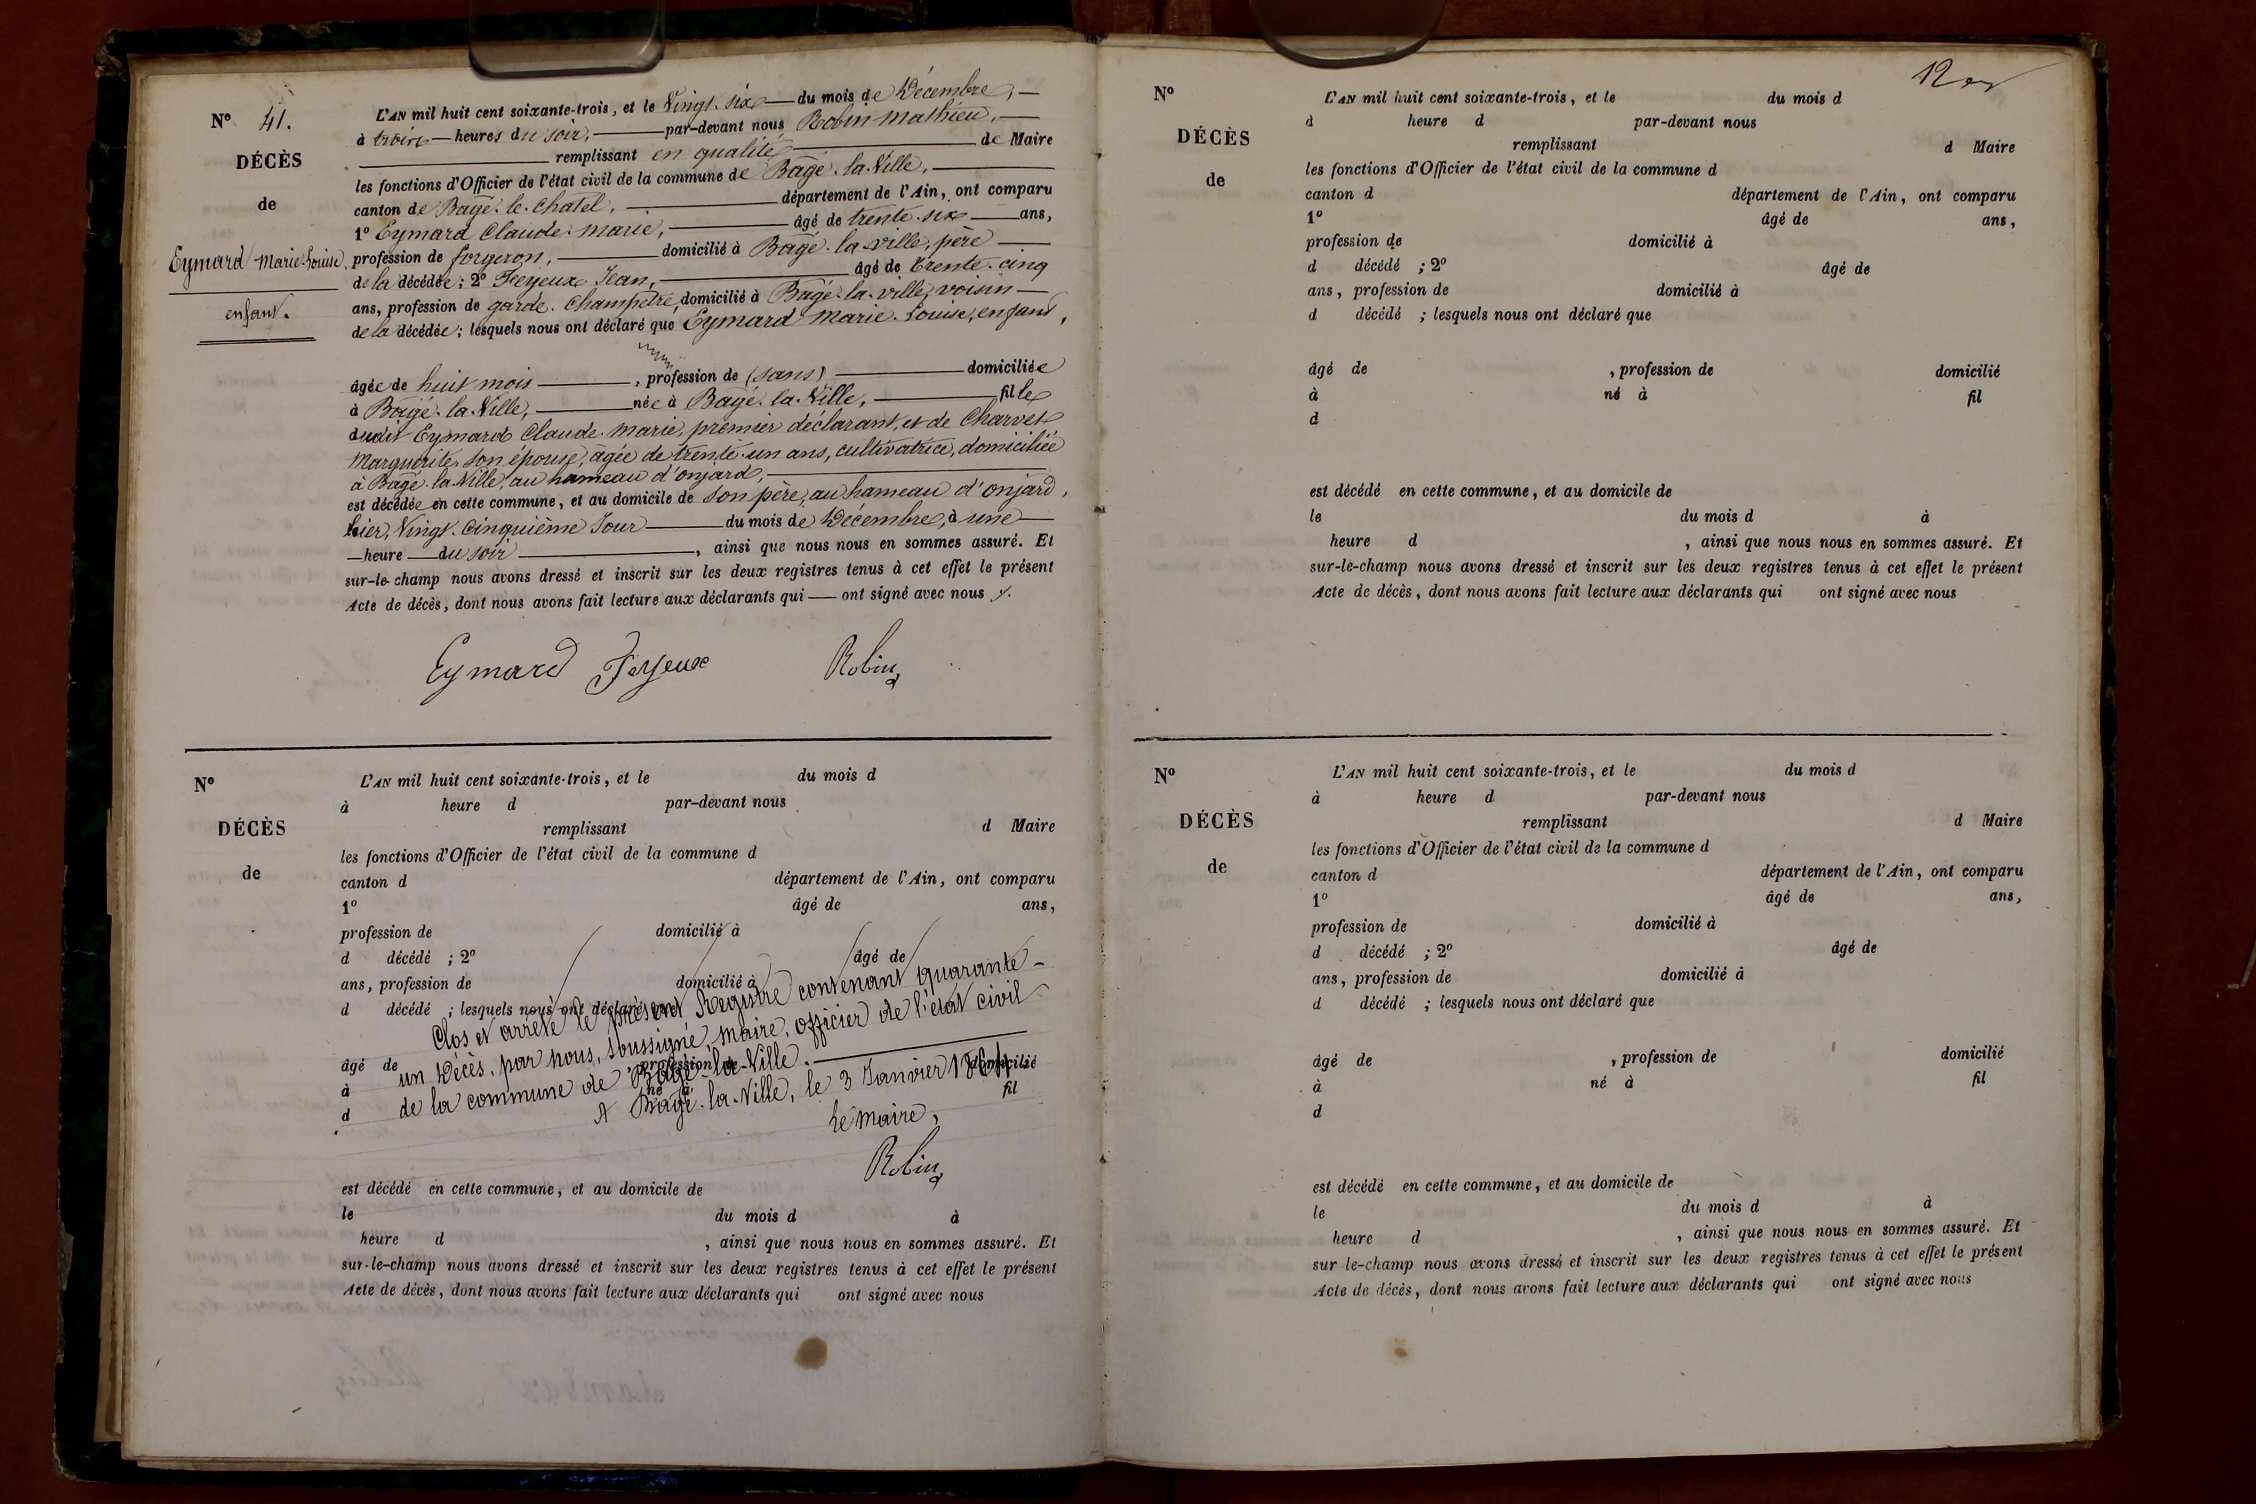 N° 41.
DÉCÈS
de
Eymard Marie-Louise,
enfant.
L'AN mil huit cent soixante-trois, et le Vingt-six du mois de Décembre,
à trois heures du soir, par-devant nous Robin Mathieu,
remplissant en qualité de Maire
les fonctions d'Officier de l'état civil de la commune de Bagé-la-Ville,
canton de Bagé-le-Chatel, département de l'Ain, ont comparu
1° Eymard Claude-Marie, âgé de trente-six ans,
profession de forgeron, domicilié à Bagé-la-Ville, père
de la décédée; 2° Feyeux Jean, âgé de trente-cinq
ans, profession de garde-Champêtre, domicilié à Bagé-la-ville, voisin
de la décédée; lesquels nous ont déclaré que Eymard Marie-Louise, enfant,
âgée de huit mois, profession de (sans) domiciliée
à Bagé-la-Ville, née à Bagé-la-Ville, fille
dudit Eymard Claude-Marie, premier déclarant, et de Charvet
Marguerite, son épouse, âgée de trente-un ans, cultivatrice, domiciliée
à Bagé-la-Ville, au hameau d'onjard,
est décédée en cette commune, et au domicile de son père, au hameau d'onjard,
hier, Vingt-Cinquième Jour du mois de Décembre, à une
heure du soir, ainsi que nous nous en sommes assuré. Et
sur-le-champ nous avons dressé et inscrit sur les deux registres tenus à cet effet le présent
Acte de décès, dont nous avons fait lecture aux déclarants qui ont signé avec nous
Eymard Feyeux Robin
N°
DÉCÈS
de
L'AN mil huit cent soixante-trois, et le du mois d
à heure d par-devant nous
remplissant d Maire
les fonctions d'Officier de l'état civil de la commune d
canton d département de l'Ain, ont comparu
1° âgé de ans,
profession de domicilié à
d décédé ; 2° âgé de
ans, profession de domicilié à
d décédé ; lesquels nous ont déclaré
Clos et arrêté le présent Registre contenant quarante-
un Décès, par nous, soussigné, maire, officier de l'état civil
de la commune de Bagé-la-Ville.
A Bagé-la-Ville, le 3 Janvier 1864
Le maire,
Robin
âgé de , profession de domicilié
à né à fil
d
est décédé en cette commune, et au domicile de
le du mois d à
heure d , ainsi que nous nous en sommes assuré. Et
sur-le-champ nous avons dressé et inscrit sur les deux registres tenus à cet effet le présent
Acte de décès, dont nous avons fait lecture aux déclarants qui ont signé avec nous
12
N°
DÉCÈS
de
L'AN mil huit cent soixante-trois, et le du mois d
à heure d par-devant nous
remplissant d Maire
les fonctions d'Officier de l'état civil de la commune d
canton d département de l'Ain, ont comparu
1° âgé de ans,
profession de domicilié à
d décédé ; 2° âgé de
ans, profession de domicilié à
d décédé ; lesquels nous ont déclaré que
âgé de , profession de domicilié
à né à fil
d
est décédé en cette commune, et au domicile de
le du mois d à
heure d , ainsi que nous nous en sommes assuré. Et
sur-le-champ nous avons dressé et inscrit sur les deux registres tenus à cet effet le présent
Acte de décès, dont nous avons fait lecture aux déclarants qui ont signé avec nous
N°
DÉCÈS
de
L'AN mil huit cent soixante-trois, et le du mois d
à heure d par-devant nous
remplissant d Maire
les fonctions d'Officier de l'état civil de la commune d
canton d département de l'Ain, ont comparu
1° âgé de ans,
profession de domicilié à
d décédé ; 2° âgé de
ans, profession de domicilié à
d décédé ; lesquels nous ont déclaré que
âgé de , profession de domicilié
à né à fil
d
est décédé en cette commune, et au domicile de
le du mois d à
heure d , ainsi que nous nous en sommes assuré. Et
sur-le-champ nous avons dressé et inscrit sur les deux registres tenus à cet effet le présent
Acte de décès, dont nous avons fait lecture aux déclarants qui ont signé avec nous